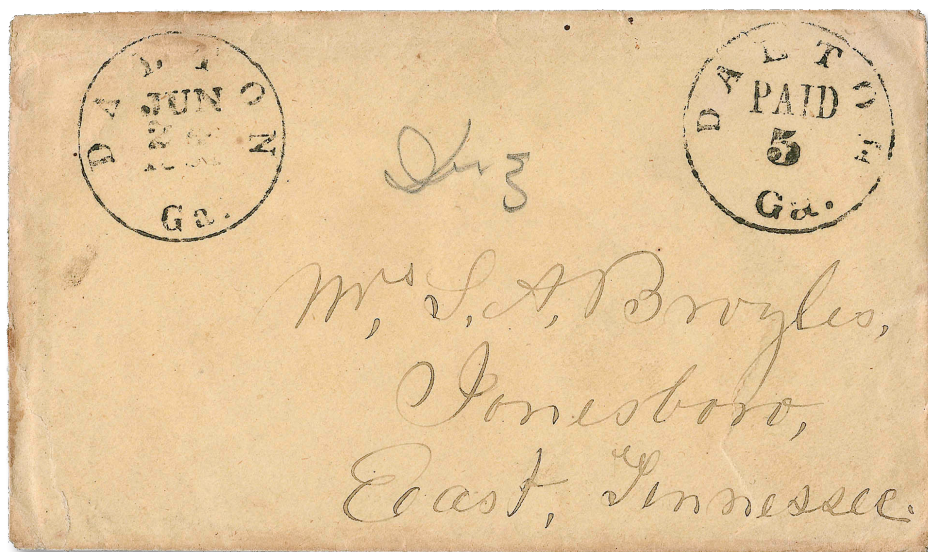 DALTON
JUN
2
Ga.
DALTON
PAID
5
Ga.
Mrs. S. A. Broyles,
Jonesboro,
East, Tennessee.